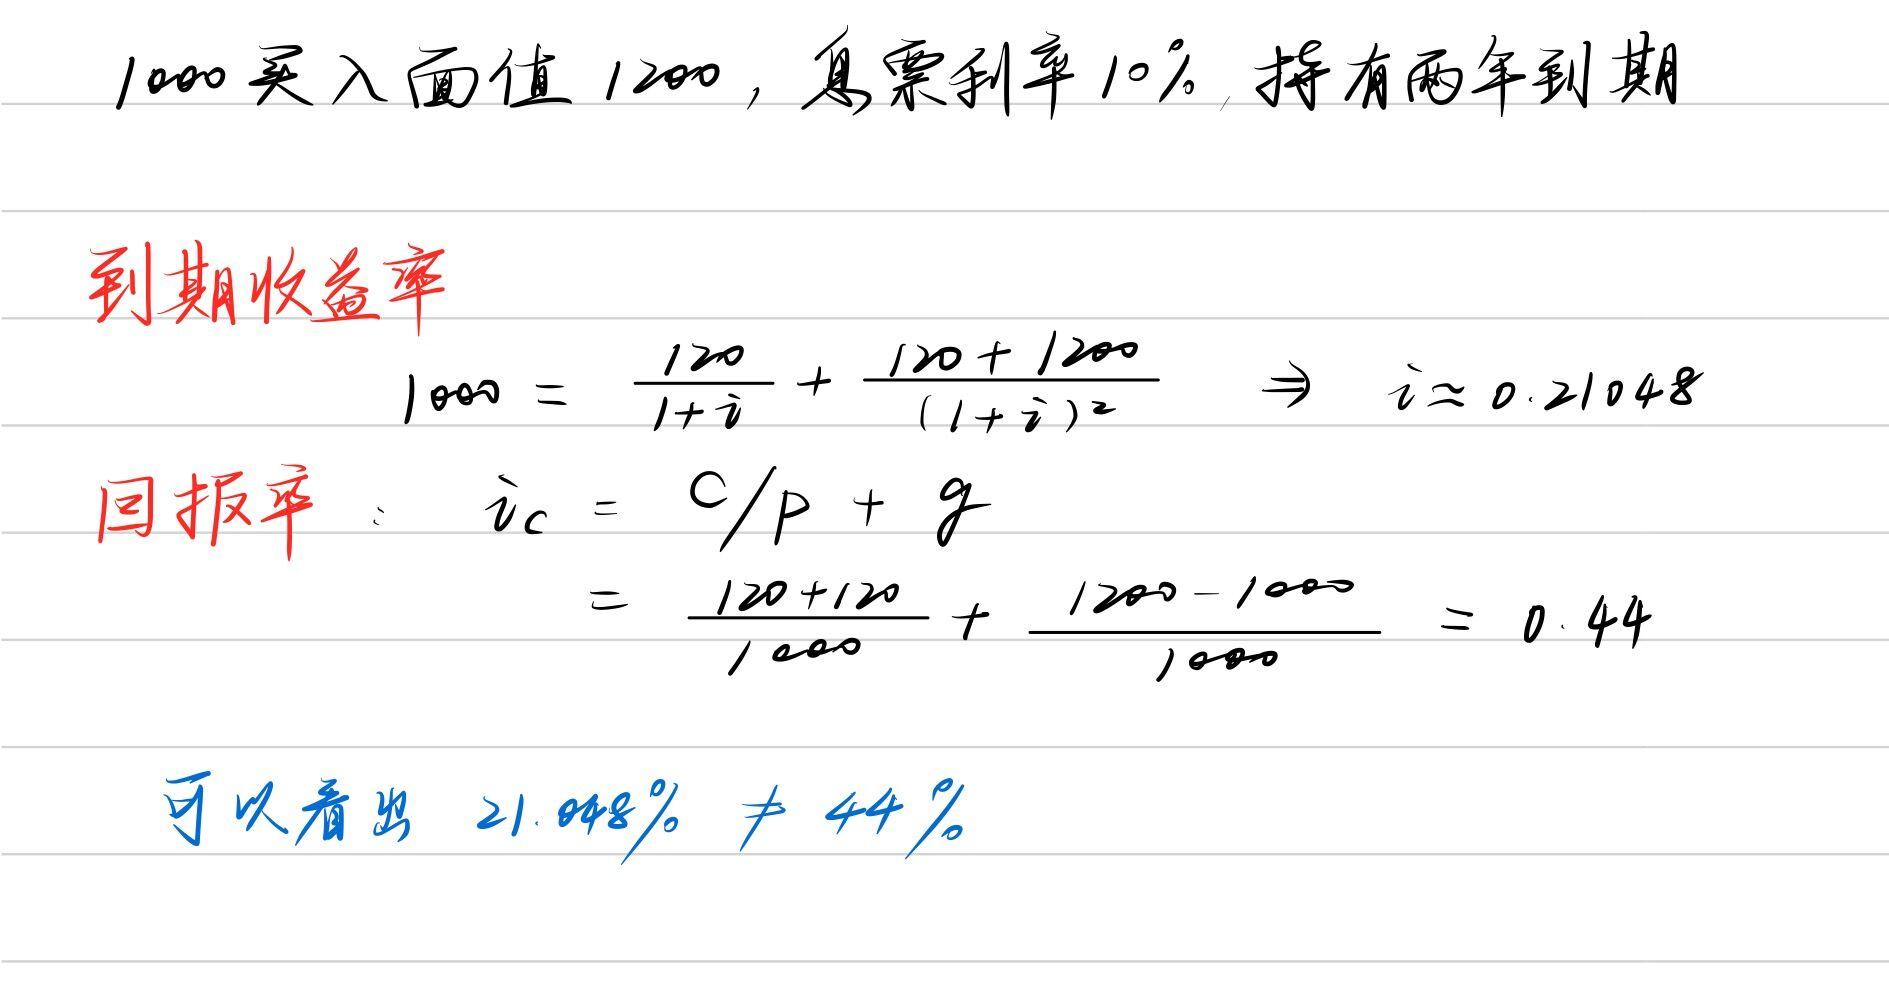 1000买入面值1200，息票利率10%，持有两年到期
到期收益率
1000 = 120/(1+i) + (120+1200)/(1+i)² ⇒ i≈0.21048
回报率： i_c = C/P + g
= (120+120)/1000 + (1200-1000)/1000 = 0.44
可以看出 21.048% ≠ 44%